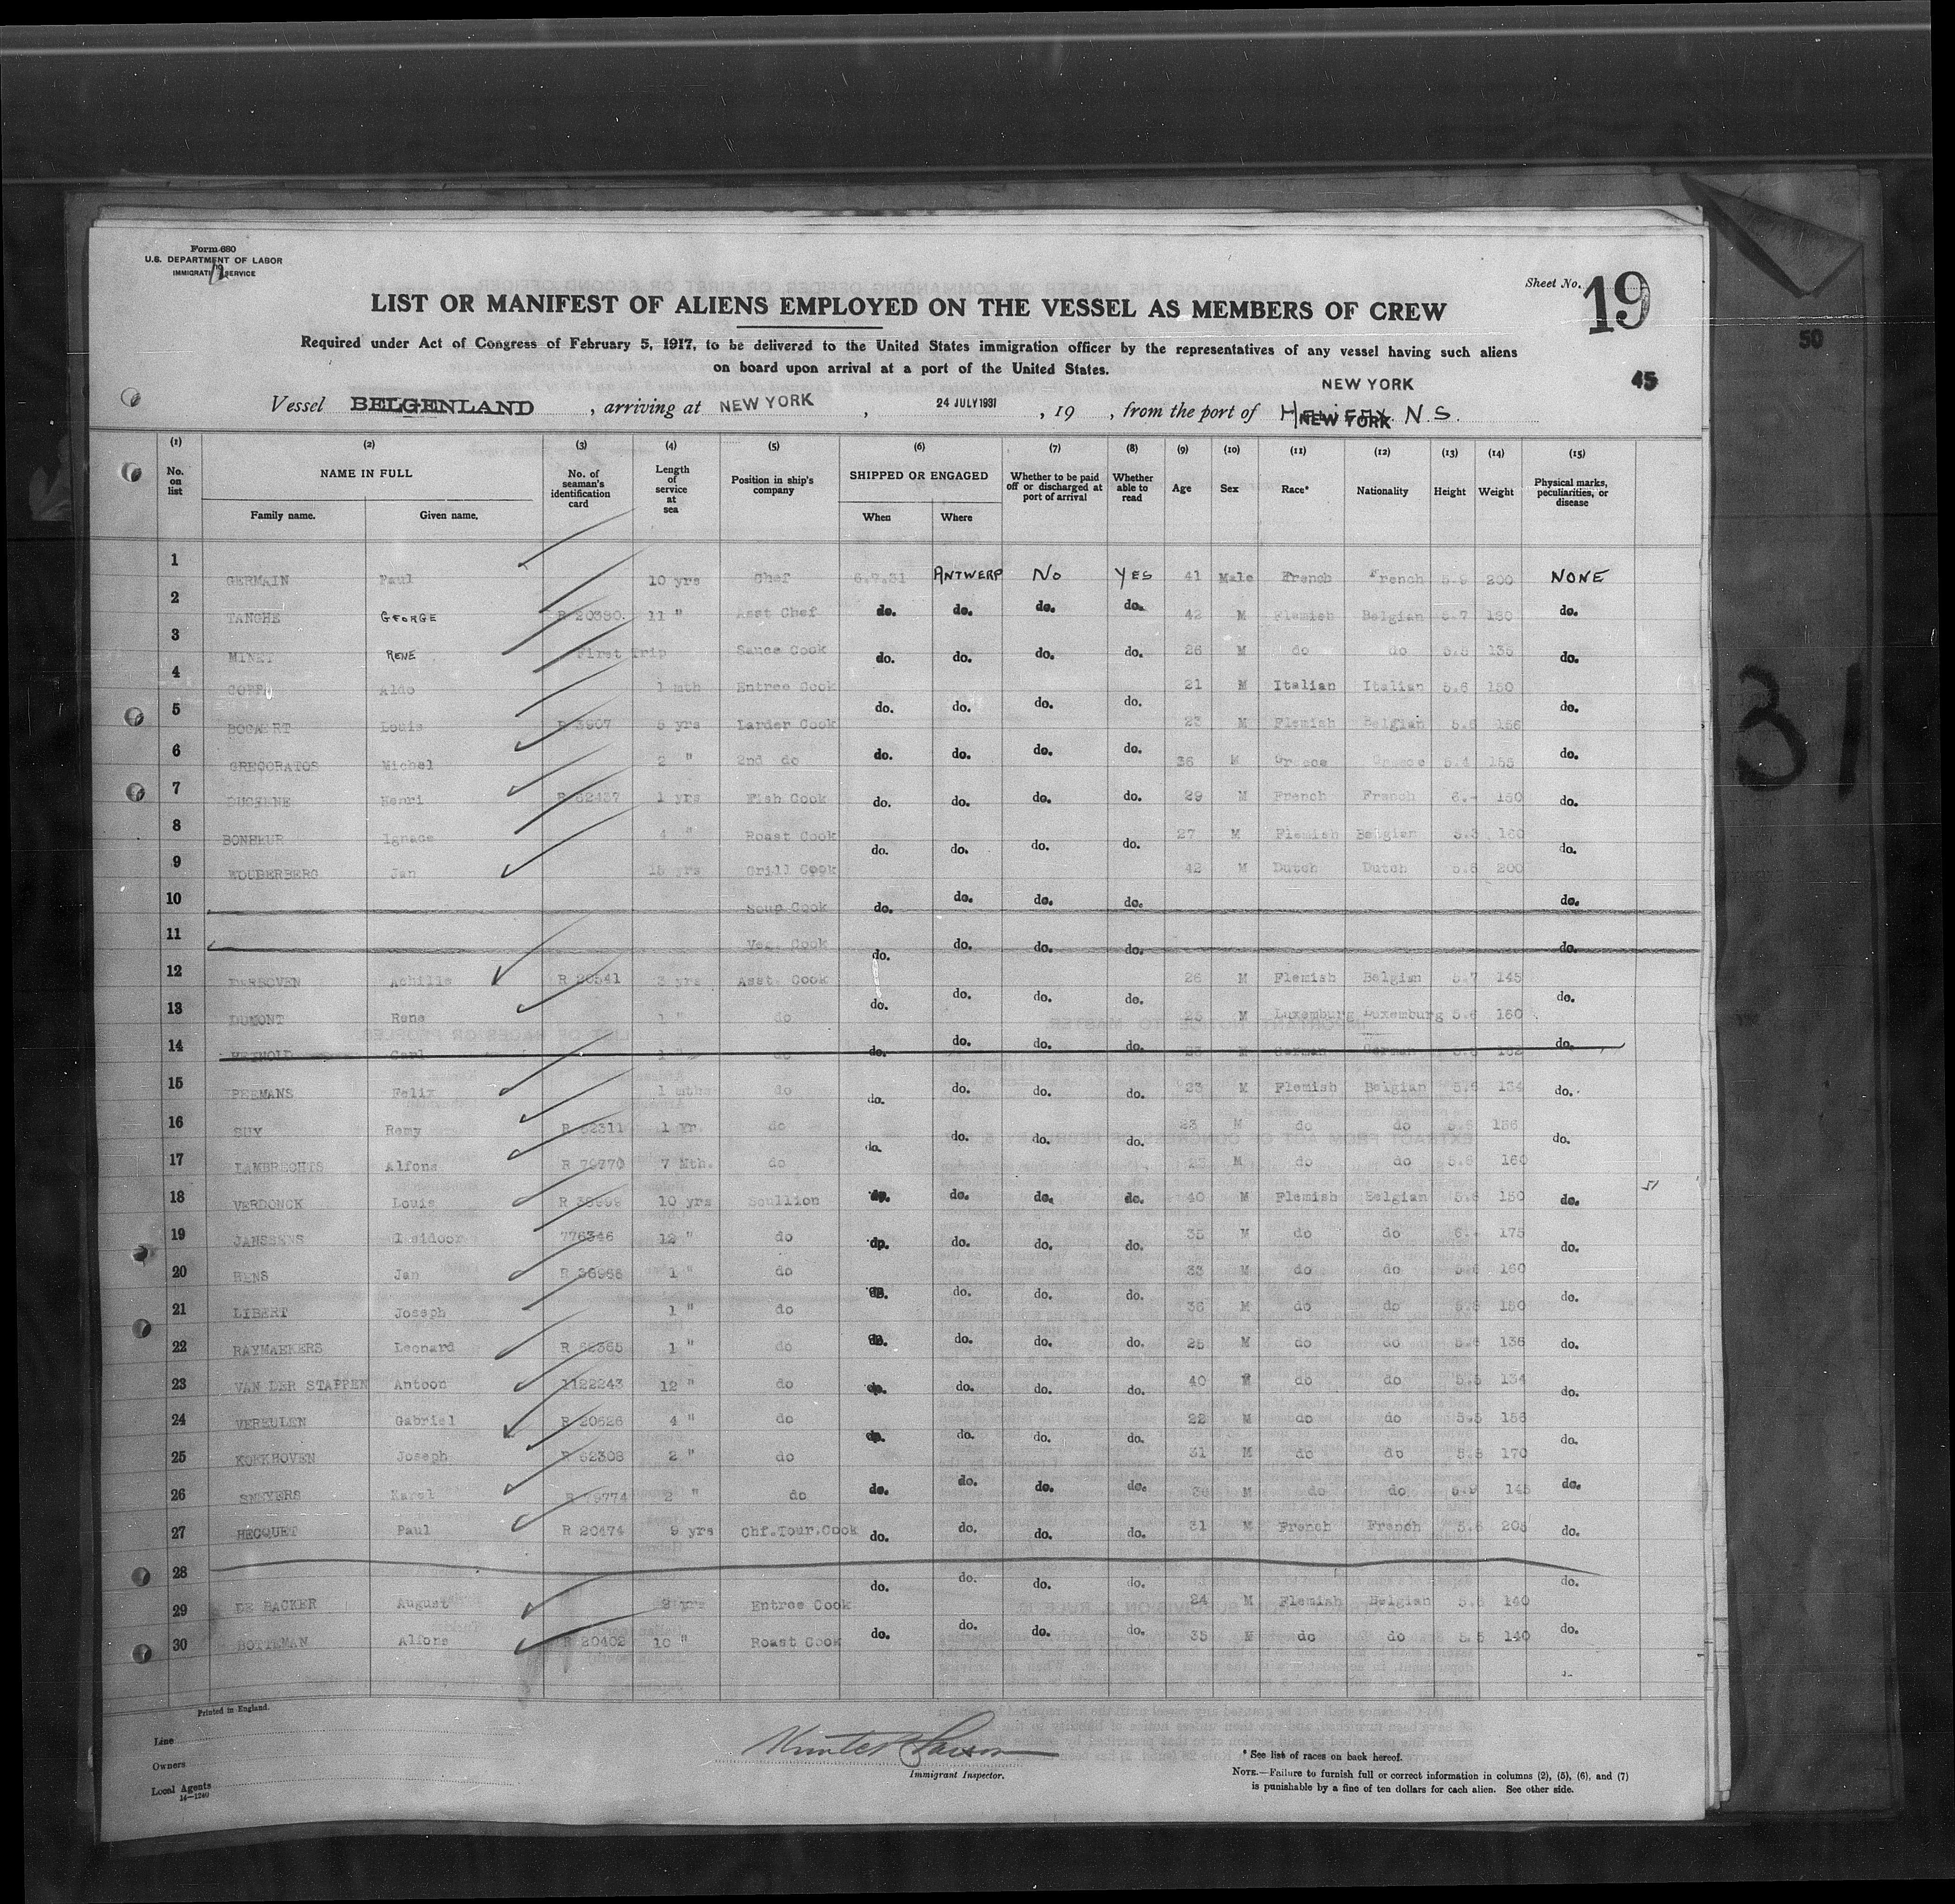 Form 680
U.S. DEPARTMENT OF LABOR
IMMIGRATION SERVICE
Sheet No. 19
LIST OR MANIFEST OF ALIENS EMPLOYED ON THE VESSEL AS MEMBERS OF CREW
Required under Act of Congress of February 5, 1917, to be delivered to the United States immigration officer by the representatives of any vessel having such aliens
on board upon arrival at a port of the United States.
50
45
NEW YORK
Vessel BELGENLAND, arriving at NEW YORK, 24 JULY 1931, 19 , from the port of HALIFAX. N.S.
NEW YORK
(1) (2) (3) (4) (5) (6) (7) (8) (9) (10) (11) (12) (13) (14) (15)
No. on list NAME IN FULL No. of seaman's identification card Length of service at sea Position in ship's company SHIPPED OR ENGAGED Whether to be paid off or discharged at port of arrival Whether able to read Age Sex Race* Nationality Height Weight Physical marks, peculiarities, or disease
Family name. Given name. When Where
1 GERMAIN Paul 10 yrs Chef 6.7.31 ANTWERP No YES 41 Male French French 5.9 200 NONE
2 TANGHE GEORGE R 20380. 11 " Asst Chef do. do. do. do. 42 M Flemish Belgian 5.7 180 do.
3 MINET RENE First Trip Sauce Cook do. do. do. do. 26 M do do 5.8 135 do.
4 Aldo 1 mth Entree Cook do. do. do. do. 21 M Italian Italian 5.6 150 do.
5 BOGAERT Louis R 3907 5 yrs Larder Cook do. do. do. do. 23 M Flemish Belgian 5.6 156 do.
6 GREGORATOS Michel 2 " 2nd do do. do. do. do. 36 M Greece Greece 5.4 155 do.
7 Henri R 62437 1 yrs Fish Cook do. do. do. do. 29 M French French 6.- 150 do.
8 BONHEUR Ignace 4 " Roast Cook do. do. do. do. 27 M Flemish Belgian 5.3 160 do.
9 WOUDERBERG Jan 15 yrs Grill Cook 42 M Dutch Dutch 5.6 200
10 Soup Cook do. do. do. do. do.
11 Veg. Cook do. do. do. do. do.
12 Achille R 20541 3 yrs Asst. Cook 26 M Flemish Belgian 5.7 145
13 DUMONT Rene 1 " do do. do. do. do. 25 M Luxemburg Luxemburg 5.6 160 do.
14 Carl 1 " do do. do. do. do. 23 M German German 5.6 162 do.
15 PEEMANS Felix 1 mths do do. do. do. do. 23 M Flemish Belgian 5.6 134 do.
16 SUY Remy R 62311 1 Yr. do do. do. do. do. 23 M do do 5.6 156 do.
17 LAMBRECHTS Alfons R 79770 7 Mth. do 23 M do do 5.6 160
18 VERDONCK Louis R 38999 10 yrs Scullion do. do. do. do. 40 M Flemish Belgian 5.6 150 do.
19 JANSSENS Isidoor 776346 12 " do do. do. do. do. 35 M do do 6.- 175 do.
20 HENS Jan R 36968 1 " do do. do. do. do. 33 M do do 5.6 160 do.
21 LIBERT Joseph 1 " do 36 M do do 5.8 150
22 RAYMAEKERS Leonard R 62365 1 " do do. do. do. do. 25 M do do 5.6 136 do.
23 VAN DER STAPPEN Antoon 1122243 12 " do do. do. do. do. 40 M do do 5.5 134 do.
24 VEREULEN Gabriel R 20626 4 " do do. do. do. do. 22 M do do 5.5 156 do.
25 KORKHOVEN Joseph R 62308 2 " do 31 M do do 5.8 170
26 SMEYERS Karel R 79774 2 " do do. do. do. do. 36 M do do 5.9 145 do.
27 HECQUET Paul R 20474 9 yrs Chf.Tour.Cook do. do. do. do. 31 M French French 5.6 205 do.
28 do. do. do. do. do.
29 DE BACKER August 2 yrs Entree Cook 24 M Flemish Belgian 5.6 140
30 BOTTEMAN Alfons R 20402 10 " Roast Cook do. do. do. do. 35 M do do 5.5 140 do.
31
Printed in England.
Line
Owners
Local Agents
14—1240
Immigrant Inspector.
* See list of races on back hereof.
NOTE.—Failure to furnish full or correct information in columns (2), (5), (6), and (7)
is punishable by a fine of ten dollars for each alien. See other side.